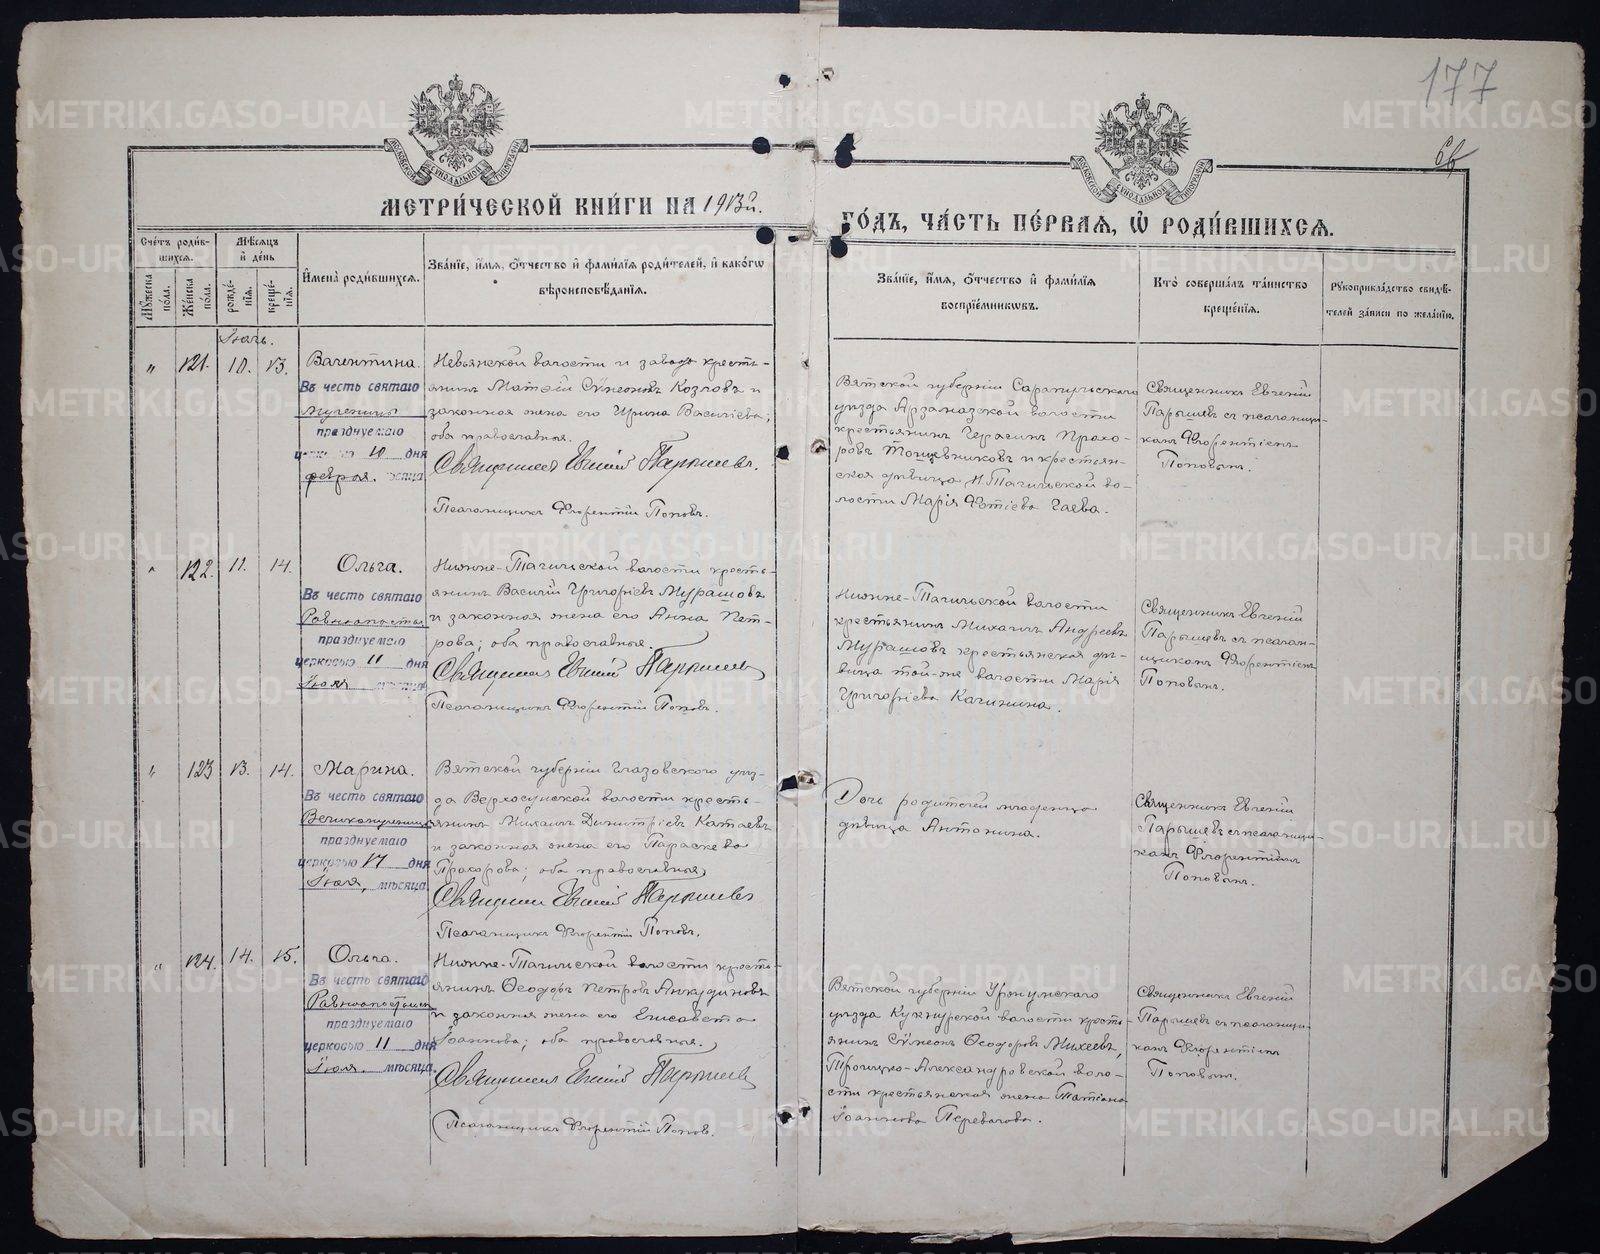 177
6б
МЕТРИ́ЧЕСКОЙ КНИ́ГИ НА 1913й.
ГО́ДЪ, ЧА́СТЬ ПЕ́РВАЯ, Ѽ РОДИ́ВШИХСЯ.
МОСКОВСКОЙ СѴНОДАЛЬНОЙ ТИПОГРАФІИ
МОСКОВСКОЙ СѴНОДАЛЬНОЙ ТИПОГРАФІИ
Сче́тъ роди́в-
шихся.
Мѣ́сяцъ
и҆ де́нь
Мꙋ́жеска по́ла.
Же́нска по́ла.
рожде́-
нїѧ.
креще́-
нїѧ.
И҆мена̀ роди́вшихся.
Зва́нїе, и҆́мя, ѻ҆́тчество и҆ фами́лїя роди́телей, и҆ како́гѡ
вѣроисповѣ́данїя.
Зва́нїе, и҆́мя, ѻ҆́тчество и҆ фами́лїя
воспрїе́мниковъ.
Кто̀ соверша́лъ та́инство
креще́нїя.
Рꙋкоприкла́дство свидѣ́-
телей за́писи по жела́нїю.
Іюль.
„
121.
10.
13.
Валентина.
Въ честь святаго
мученицы
празднуемаго
10 дня
февраля.
Невьянской волости и завода кресть-
янинъ Матѳій Сѵмеоновъ Козловъ и
законная жена его Ирина Василіева;
оба православные.
Священникъ Евгеній Парышевъ.
Псаломщикъ Флорентій Поповъ.
Вятской губерніи Сарапульскаго
уѣзда Арзамазской волости
крестьянинъ Герасимъ Прохо-
ровъ и крестьян-
ская дѣвица Н.Тагильской во-
лости Марія Фотіева Гаева.
Священникъ Евгеній
Парышевъ съ псаломщи-
комъ Флорентіемъ
Поповымъ.
„
122.
11.
14.
Ольга.
Въ честь святаго
Равноапостол
празднуемаго
церковью 11 дня
Іюля мѣсяца
Нижне-Тагильской волости кресть-
янинъ Василій Григорьевъ Мурашовъ
и законная жена его Анна Пет-
рова; оба православные.
Священникъ Евгеній Парышевъ
Псаломщикъ Флорентій Поповъ.
Нижне-Тагильской волости
крестьянинъ Михаилъ Андреевъ
Мурашовъ крестьянская дѣ-
вица той-же волости Марія
Григорьева Калинина.
Священникъ Евгеній
Парышевъ съ псалом-
щикомъ Флорентіемъ
Поповымъ.
„
123
13.
14.
Марина.
Въ честь святаго
Великомученицы
празднуемаго
церковью 17 дня
Іюля, мѣсяца
Вятской губерніи Глазовскаго уѣз-
да Верхосунской волости кресть-
янинъ Михаилъ Димитріевъ Катаевъ
и законная жена его Параскева
Прохорова; оба православные
Священникъ Евгеній Парышевъ
Псаломщикъ Флорентій Поповъ.
Дочь родителей младенца
дѣвица Антонина.
Священникъ Евгеній
Парышевъ съ псаломщи-
комъ Флорентіемъ
Поповымъ.
„
124.
14.
15.
Ольга.
Въ честь святаго
Равноапостольн
празднуемаго
церковью 11 дня
Іюля. мѣсяца.
Нижне-Тагильской волости кресть-
янинъ Ѳеодоръ Петровъ Анкудиновъ
и законная жена его Елисавета
Іоаннова; оба православные.
Священникъ Евгеній Парышевъ
Псаломщикъ Флорентій Поповъ.
Вятской губерніи Уржумскаго
уѣзда Кукнурской волости кресть-
янинъ Сѵмеонъ Ѳеодоровъ Михеевъ,
Троицко-Александровской воло-
сти крестьянская жена Татіана
Іоаннова Перевалова.
Священникъ Евгеній
Парышевъ съ псаломщи-
комъ Флорентіемъ
Поповымъ.
METRIKI.GASO-URAL.RU